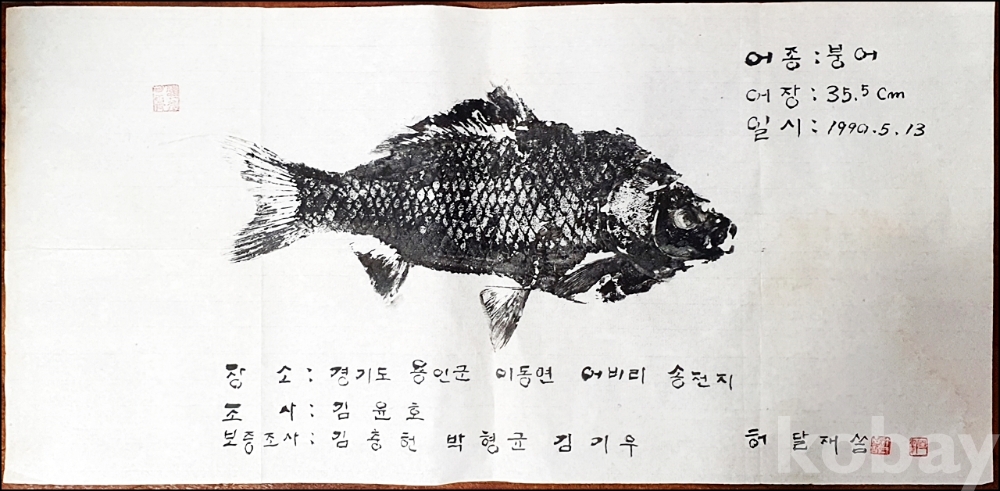 어종:붕어
어장:35.5cm
일시:1990.5.13
장소:경기도 용인군 이동면 어비리 송전지
조사:김윤호
보증조사:김충헌 박형균 김기우
허달재 씀
kobay